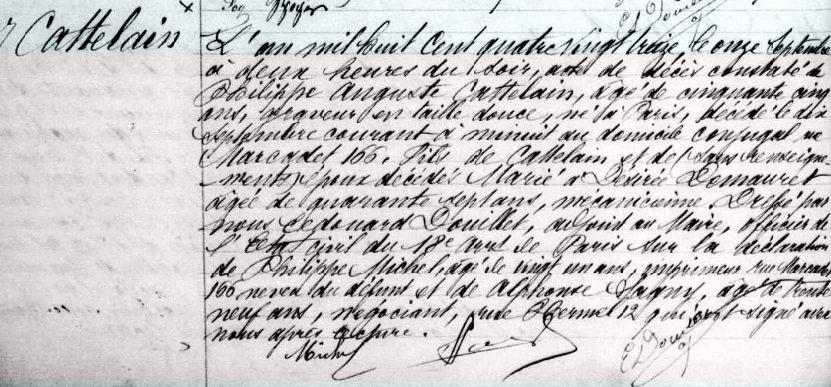 Cattelain
L'an mil huit cent quatre vingt treize, le onze Septembre
à deux heures du soir, acte de décès constaté de
Philippe Auguste Cattelain, âgé de cinquante cinq
ans, graveur en taille douce, né à Paris, décédé le dix
Septembre courant à minuit au domicile conjugal rue
Marcadet 166. Fils de Cattelain et de (sans renseigne
ments) époux décédés Marié à Désirée Demauret
âgée de quarante sept ans, mécanicienne. Dressé par
nous Edouard Douillet, adjoint au Maire, officier de
l'état civil du 18e arrt de Paris sur la déclaration
de Philippe Michel, âgé de vingt un ans, imprimeur rue Marcadet
166 neveu du défunt et de Alphonse Lagny, âgé de trente
neuf ans, négociant, rue Hermel 12 qui ont signé avec
nous après lecture.
Michel
E Douillet